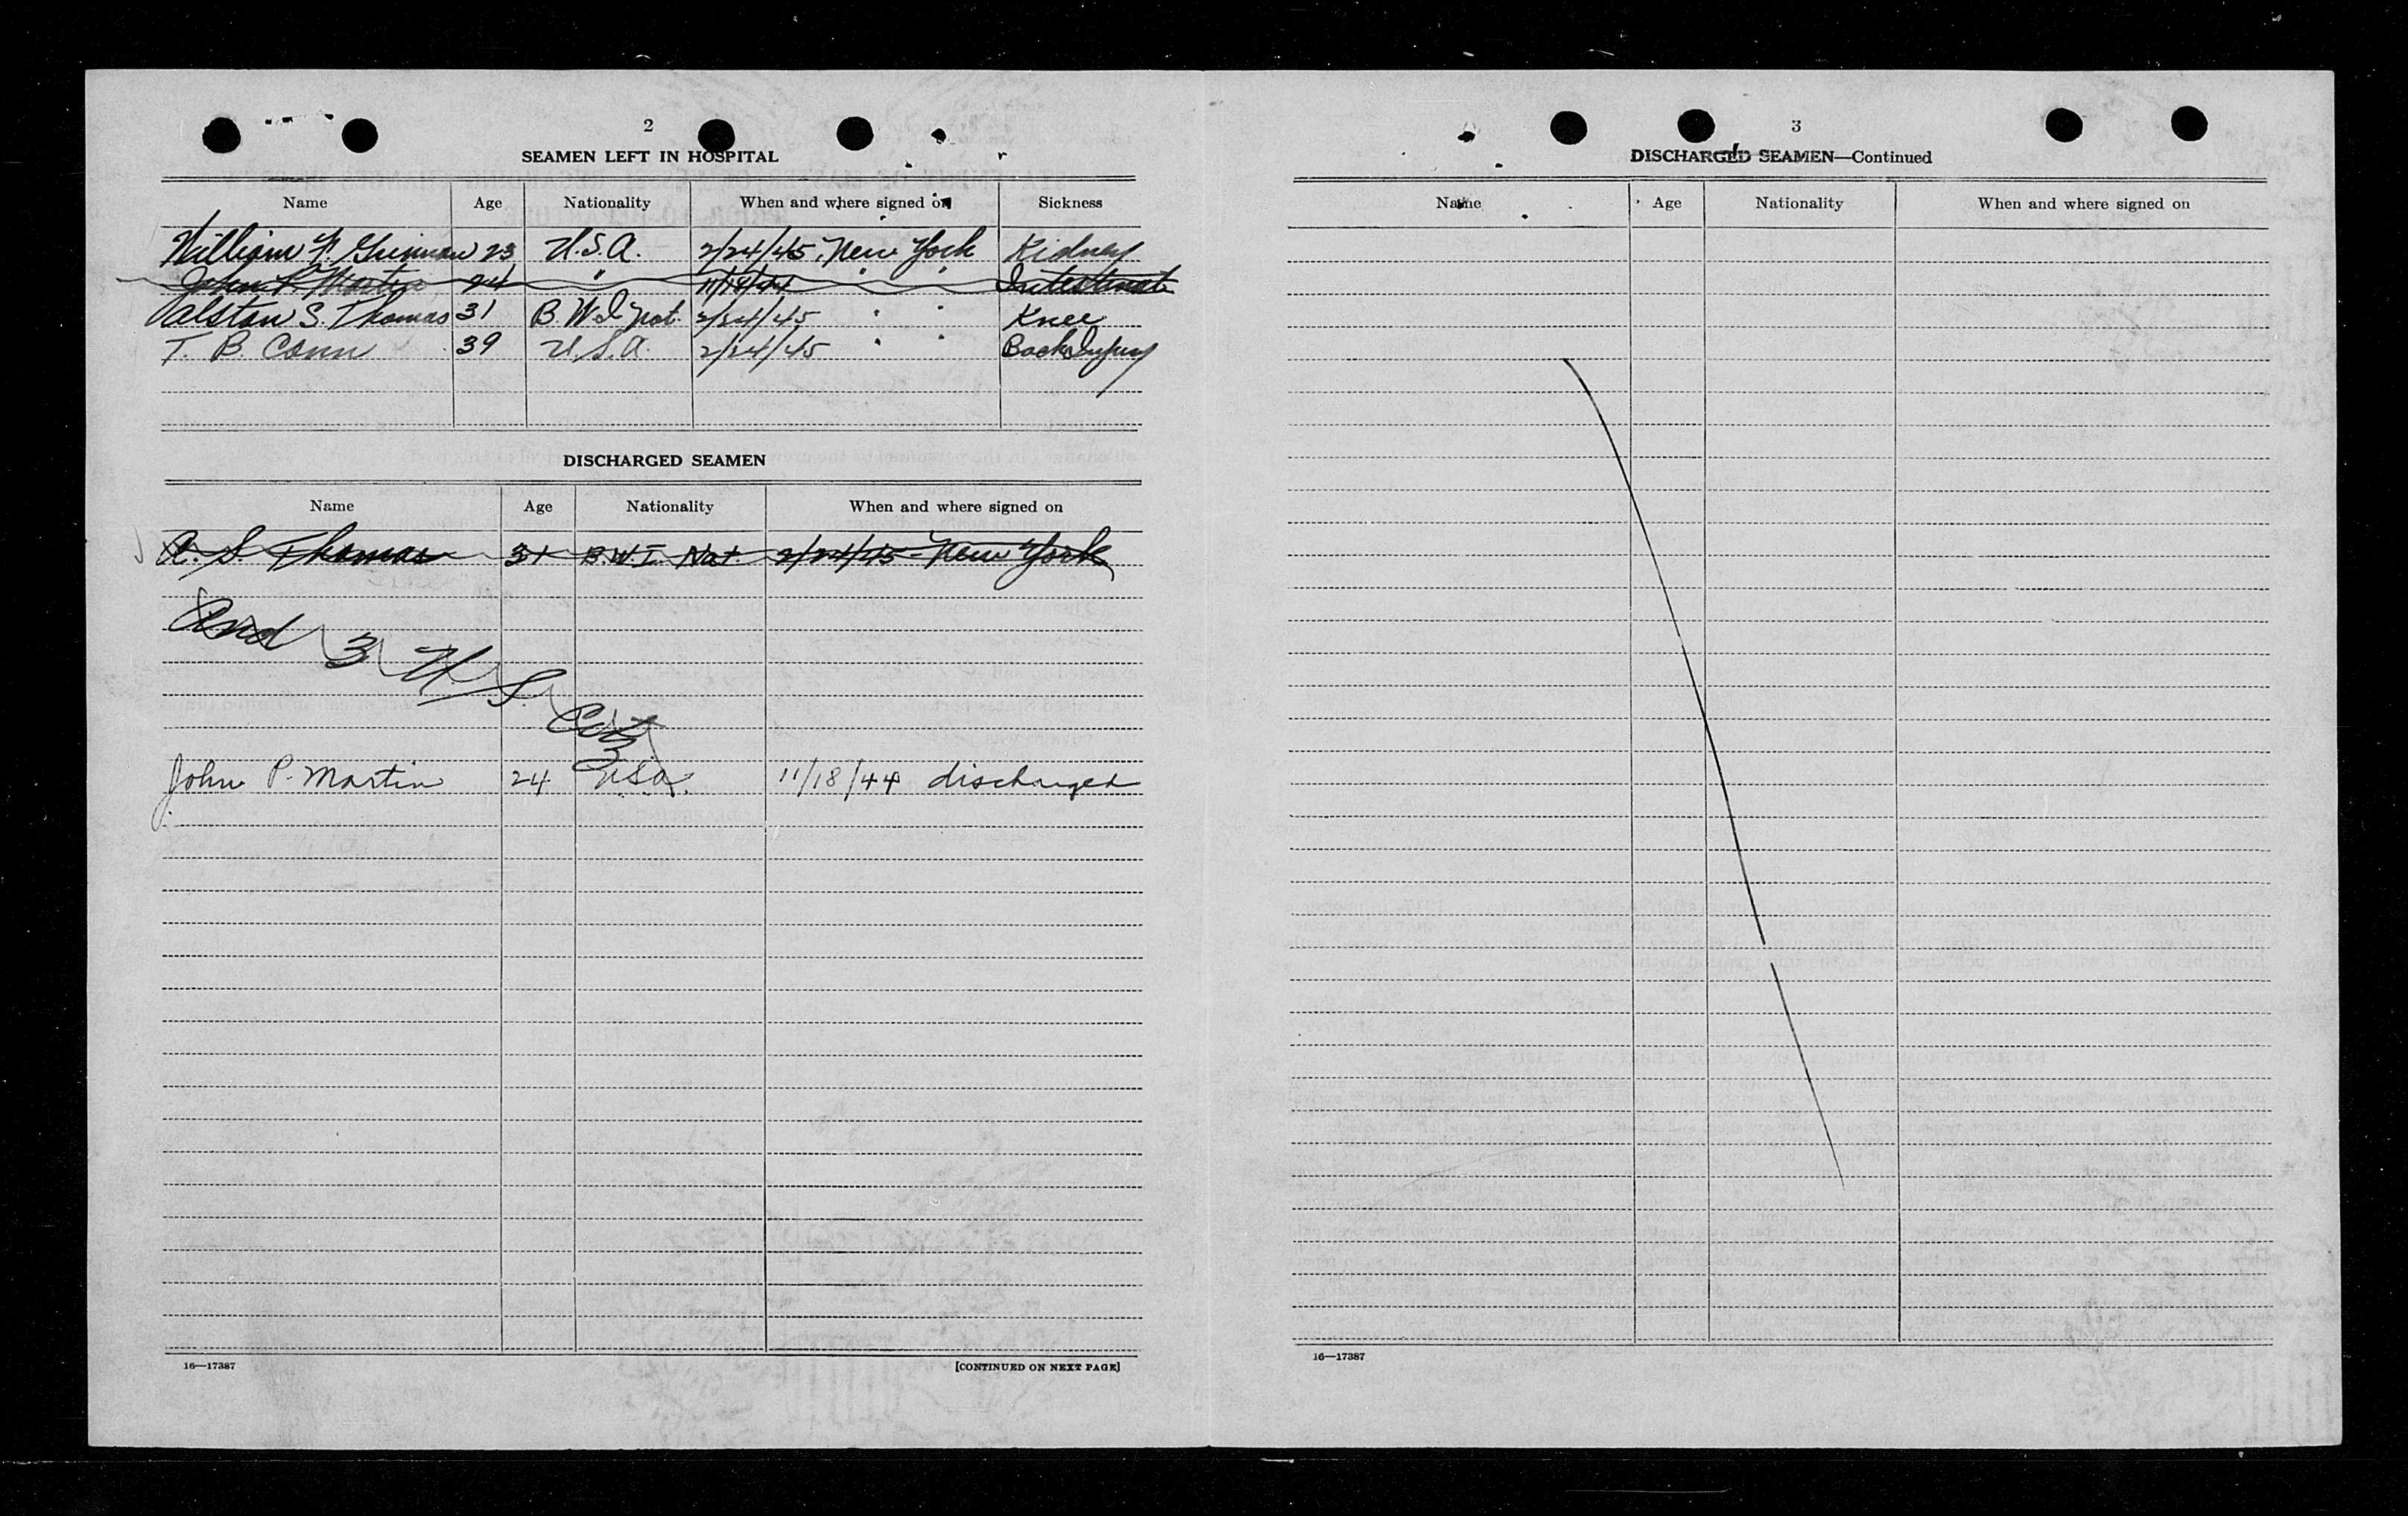 2
SEAMEN LEFT IN HOSPITAL
Name Age Nationality When and where signed on Sickness
William 23 U.S.A. 2/24/45 New York Kidney
John P. Martin 24 " 11/18/44 " " Intestinal
Alston S. Thomas 31 B.W.I. Nat. 2/24/45 " " Knee
T. B. Conn 39 U.S.A. 2/24/45 " " Back Injury
DISCHARGED SEAMEN
Name Age Nationality When and where signed on
A. S. Thomas 31 B.W.I. Nat. 2/24/45 - New York
And 3 U.S. Citz
John P. Martin 24 USA. 11/18/44 discharged
16—17387
[CONTINUED ON NEXT PAGE]
3
DISCHARGED SEAMEN—Continued
Name Age Nationality When and where signed on
16—17387